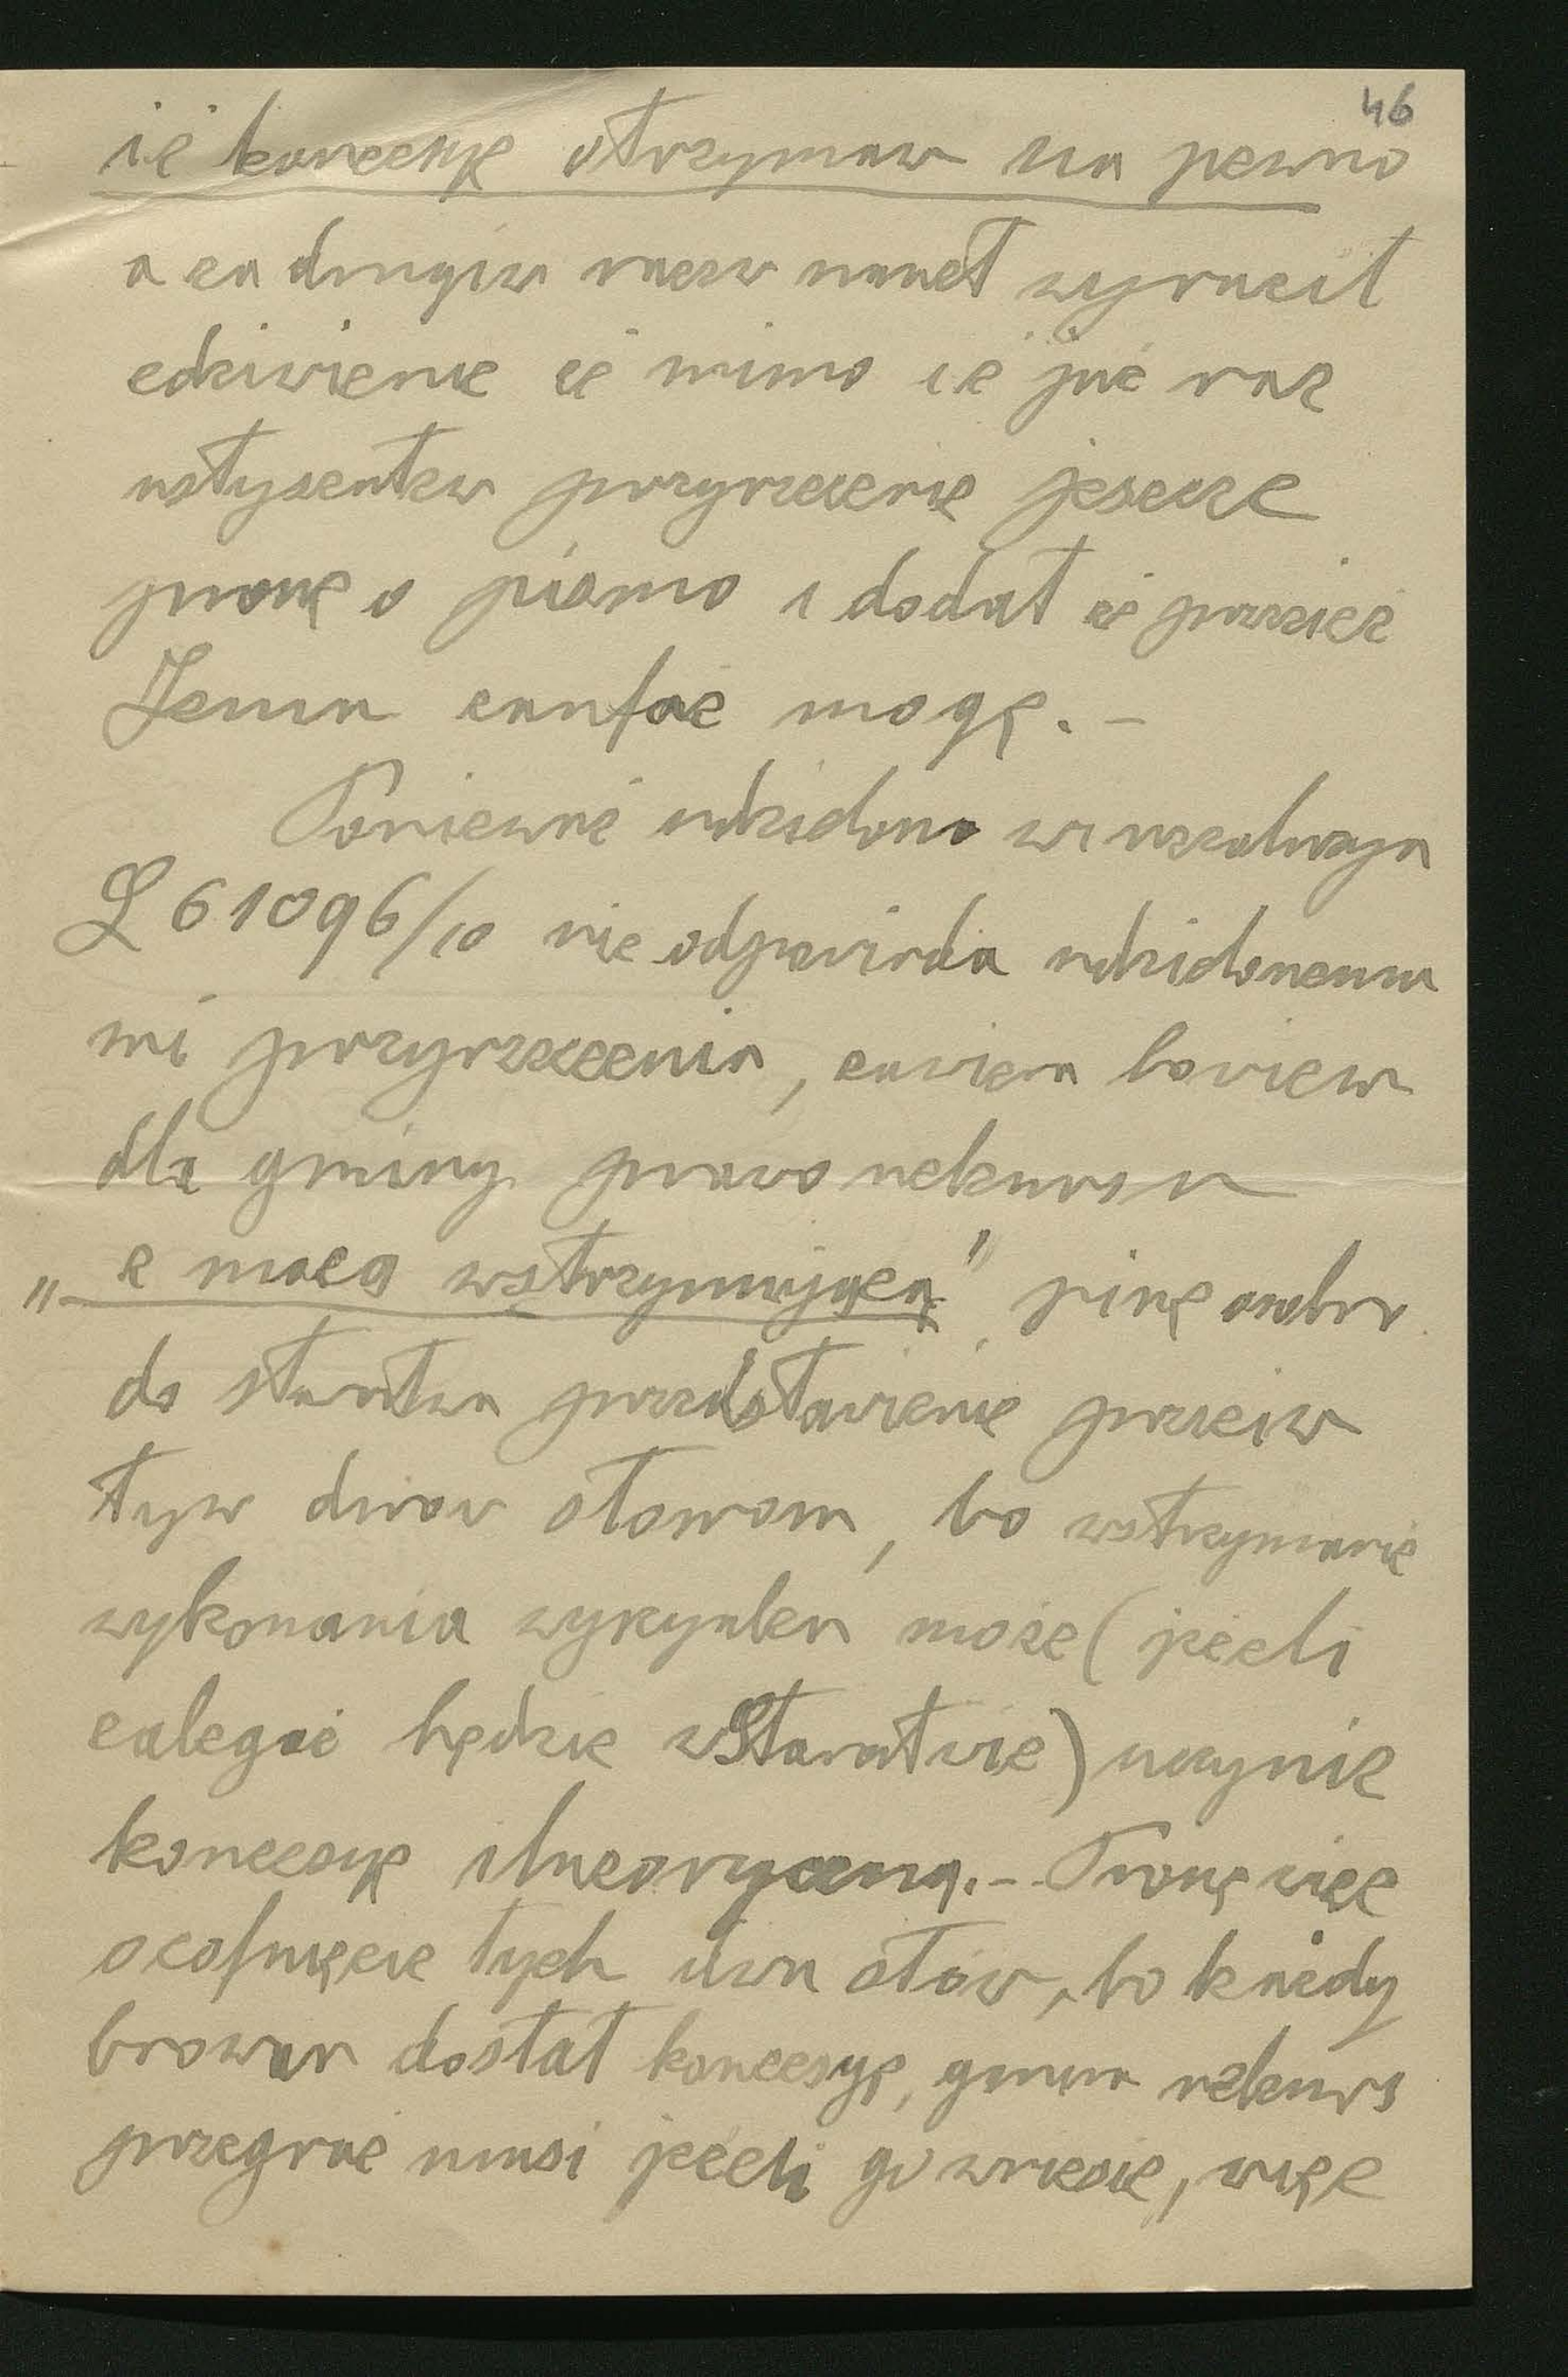 46
iż koncesyę otrzymam na pewno
a za drugim razem nawet wyraził
zdziwienie że mimo iż już raz
usłyszałem przyrzeczenie jeszcze
proszę o pismo i dodał że przecież
Jemu zaufać mogę. –
Ponieważ udzielona mi rezolucya
L 61096/10 nie odpowiada udzielonemu
mi przyrzeczeniu, zawiera bowiem
dla gminy prawo rekursu
„z mocą wstrzymującą” piszę osobno
do starostwa przedstawienie przeciw
tym dwom słowom, bo wstrzymanie
wykonania wyszynku może (jeżeli
zależeć będzie w Starostwie) uczynić
koncesyę iluzoryczną. – Proszę więc
o cofnięcie tych dwu słów, bo każdy
browar dostał koncesyę, gmina rekurs
przegrać musi jeżeli go wniesie, więc